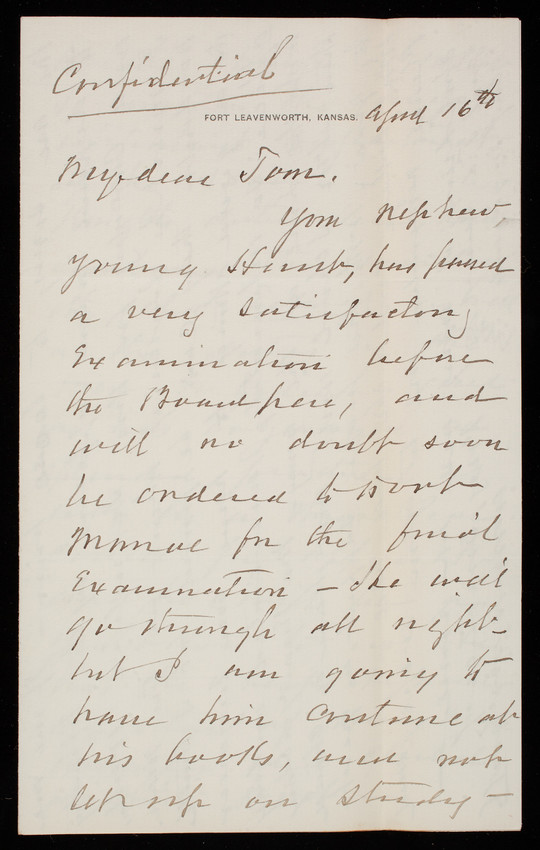 Confidential
FORT LEAVENWORTH, KANSAS. April 16th
My dear Tom.
Your nephew,
young Hunt, has passed
a very satisfactory
Examination before
the Board here, and
will no doubt soon
be ordered to Fort
Monroe for the final
Examination – He will
go through all right –
but I am going to
have him continue at
his books, and not
let up on study –